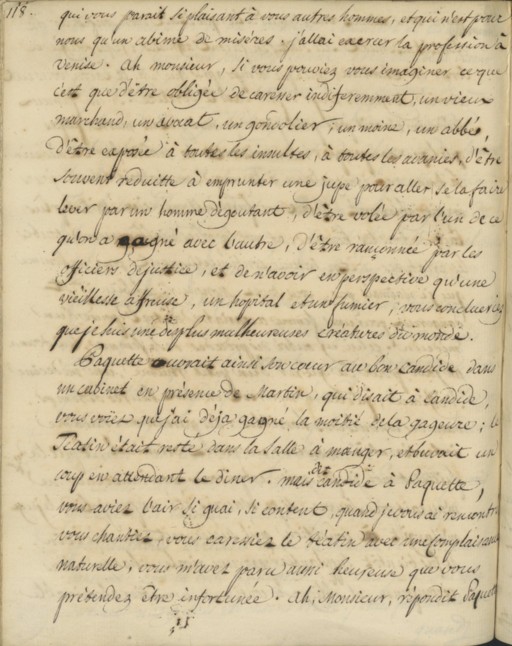 118.
qui vous parait si plaisant à vous autres hommes, et qui n'est pour
nous qu'un abime de misères. j'allai exercer la profession à
venise. Ah monsieur, si vous pouviez vous imaginer ce que
c'est que d'être obligée de caresser indiferemment, un vieux
marchand, un avocat, un gondolier, un moine, un abbé,
d'être exposée à toutes les insultes, à toutes les avanies, d'être
souvent reduitte à emprunter une jupe pour aller se la faire
lever par un homme dégoutant, d'être volée par l'un de ce
qu'on a gagné avec l'autre, d'être rançonnée par les
officiers de justice, et de n'avoir en perspective qu'une
vieillesse affreuse, un hopital et un fumier; vous concluerez
que je suis une des plus malheureuses créatures du monde.
Paquette ouvrait ainsi son coeur au bon candide dans
un cabinet en présence de Martin, qui disait à candide,
vous voiez que j'ai déja gagné la moitié de la gageure; le
Téatin était resté dans la salle à manger, et buvait un
coup en attendant le diner. mais dit candide à Paquette,
vous aviez l'air si guai, si content, quand je vous ai rencontré
vous chantiez, vous caressiez le téatin avec une complaisance
naturelle, vous m'avez paru aussi heureuse que vous
prétendez être infortunée. Ah, Monsieur, répondit Paquette